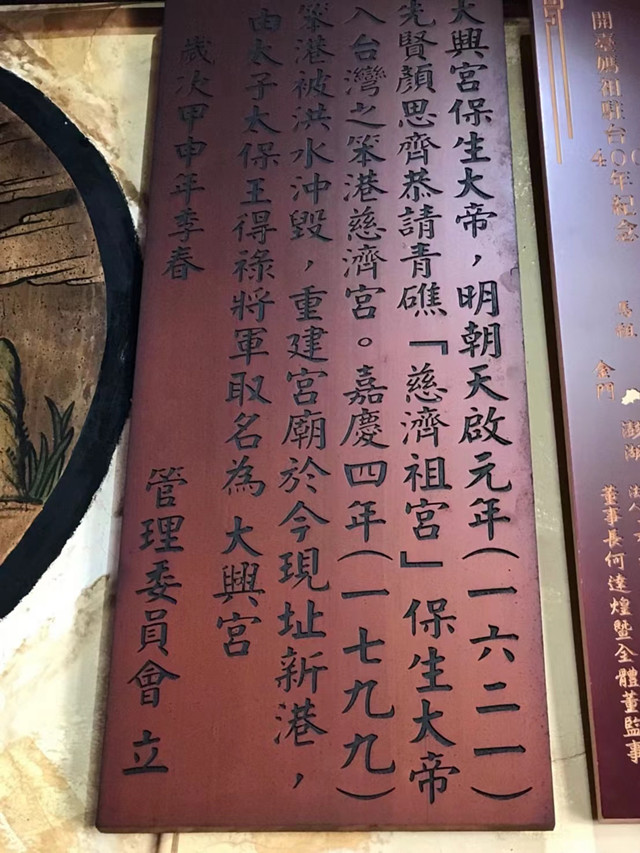 大興宮保生大帝，明朝天啟元年(一六二一)
先賢顏思齊恭請青礁「慈濟祖宮」保生大帝
入台灣之笨港慈濟宮。嘉慶四年(一七九九)
笨港被洪水沖毀，重建宮廟於今現址新港，
由太子太保王得祿將軍取名為 大興宮
歲次甲申年季春
管理委員會 立
開臺媽祖駐台
40年紀念
馬祖
金門
澎湖
董事長何達煌暨全體董監事